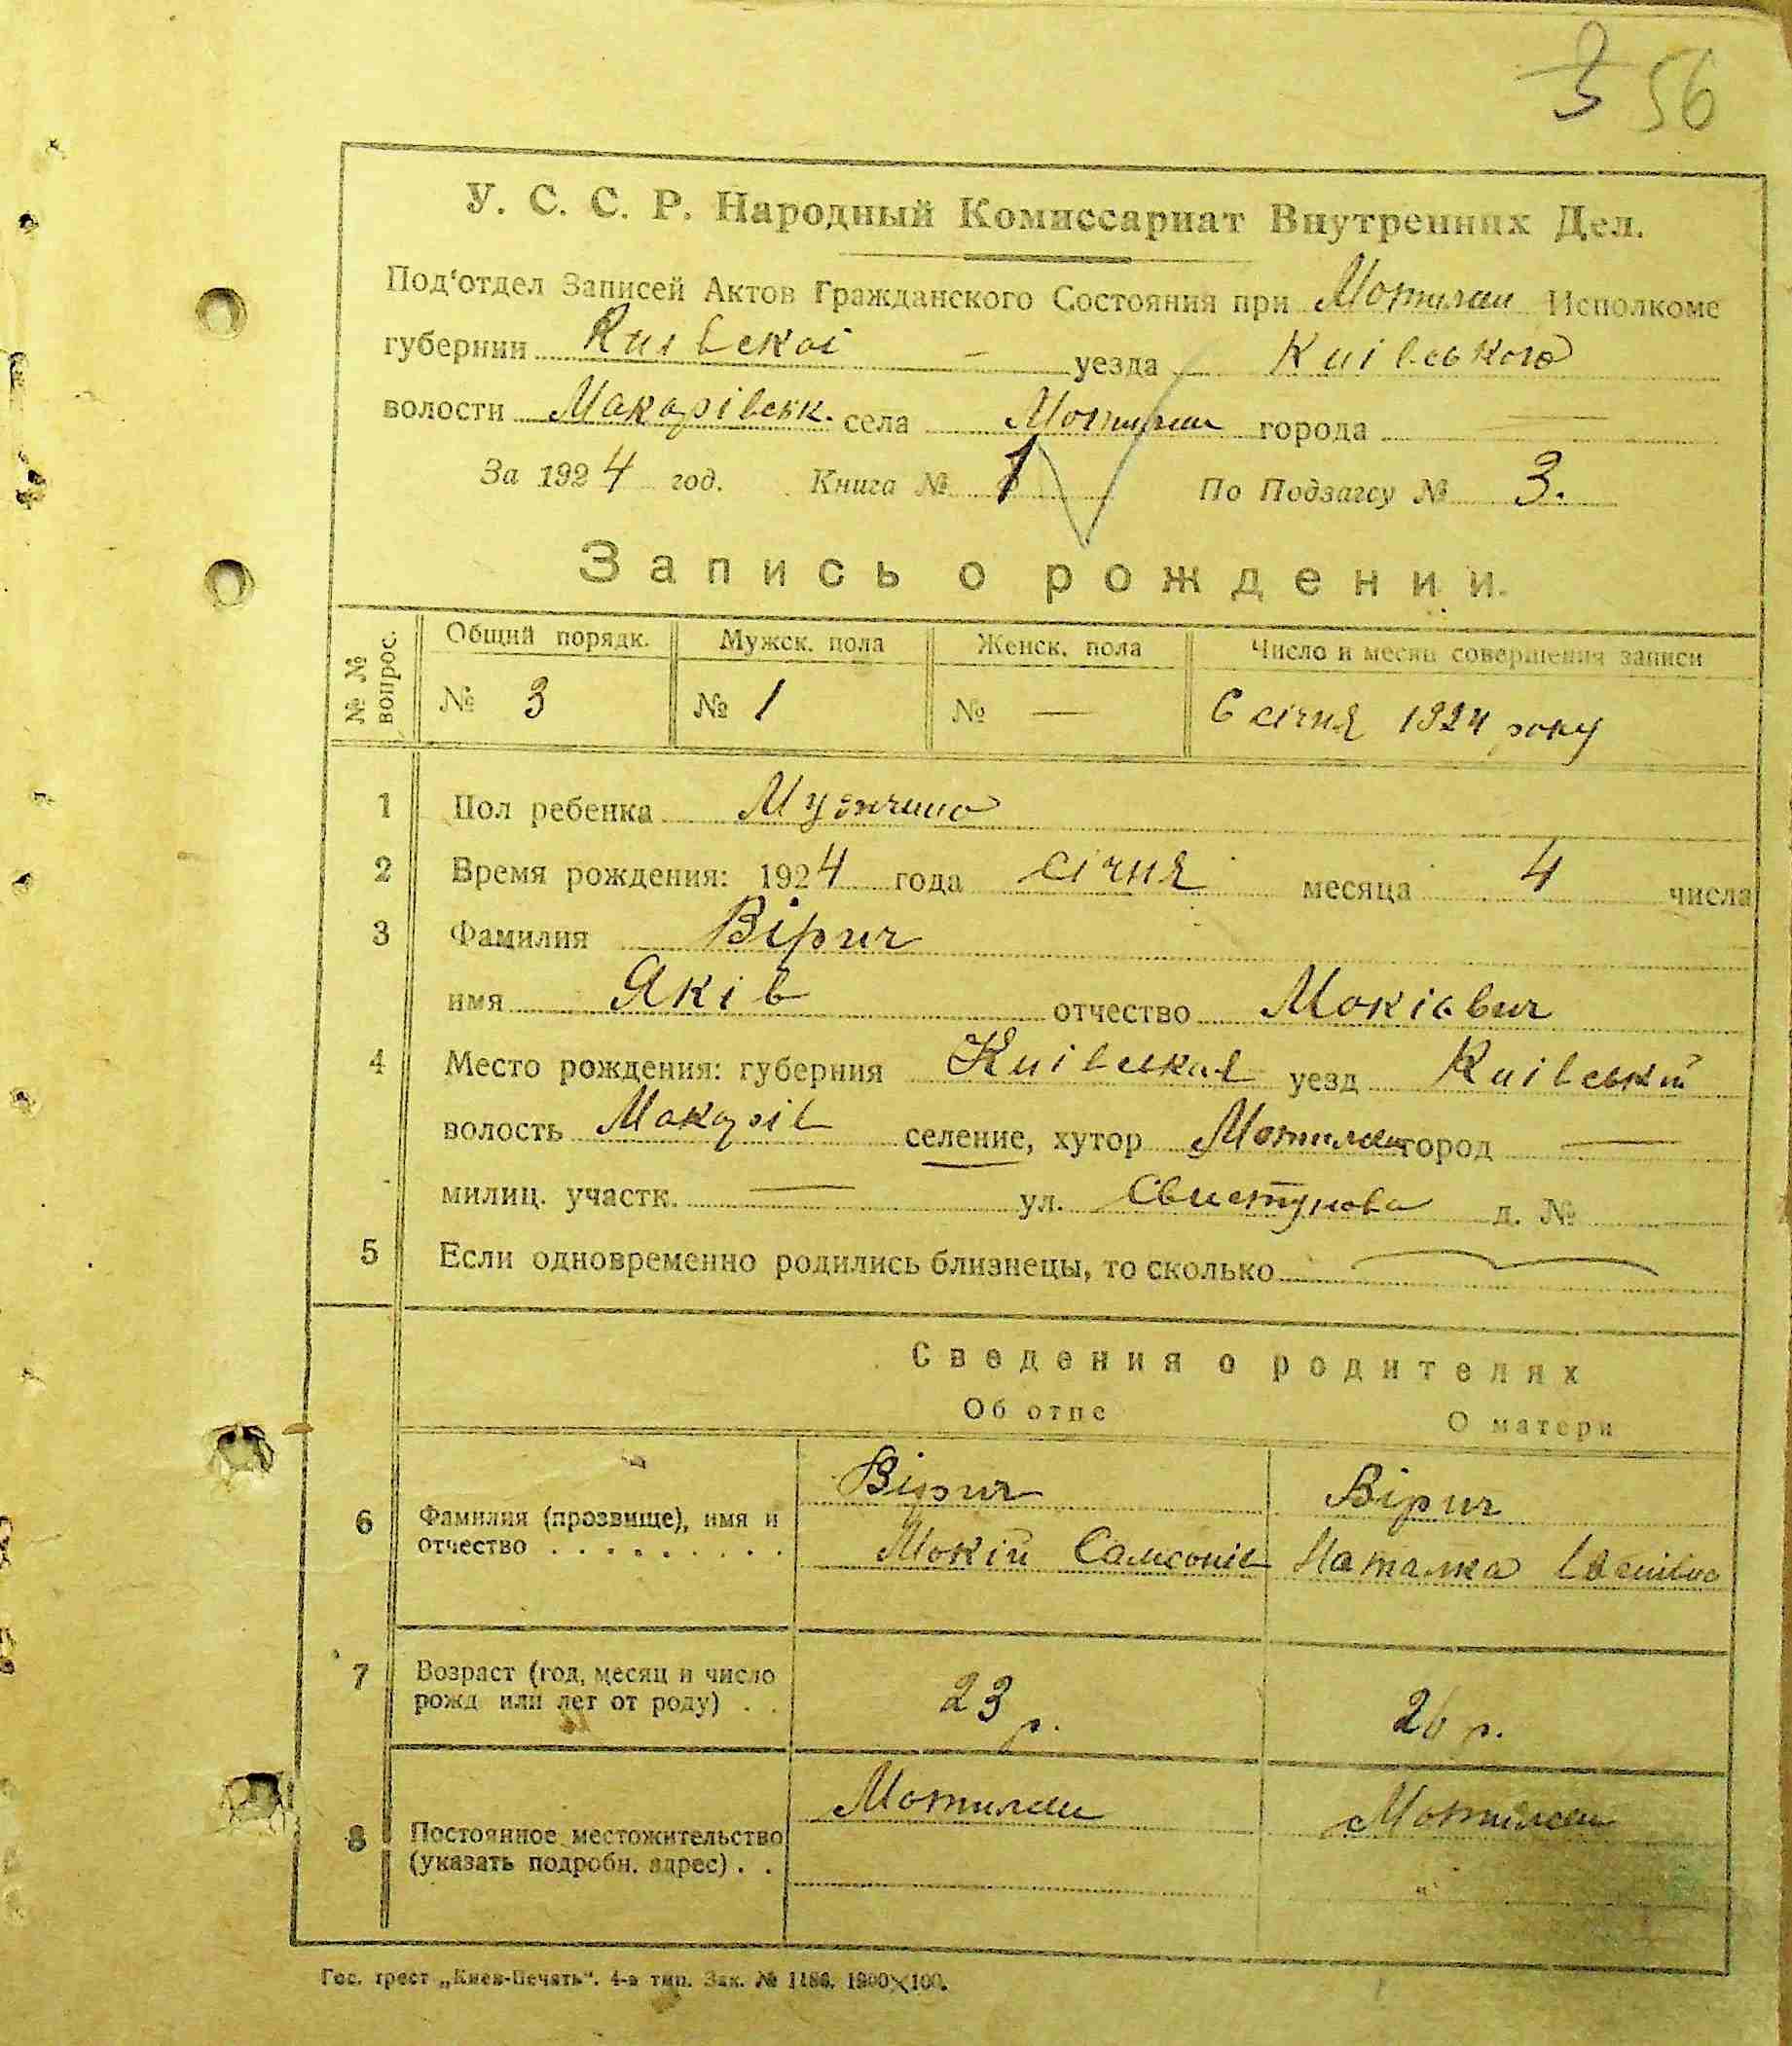 3 56
У. С. С. Р. Народный Комиссариат Внутренних Дел.
Под‘отдел Записей Актов Гражданского Состояния при Мотижин Исполкоме
губернии Київскої — уезда Київського
волости Макарівськ. села Мотижин города —
За 1924 год. Книга № 1 По Подзагсу № 3.
Запись о рождении.
№ № вопрос. Общий порядк. Мужск. пола Женск. пола Число и месяц совершения записи
№ 3 № 1 № — 6 січня 1924 року
1 Пол ребенка Мужчина
2 Время рождения: 1924 года січня месяца 4 числа
3 Фамилия Вірич
имя Яків отчество Мокієвич
4 Место рождения: губерния Київська уезд Київський
волость Макарів селение, хутор Мотижин город —
милиц. участк. — ул. Свистунова д. №
5 Если одновременно родились близнецы, то сколько —
Сведения о родителях
Об отце О матери
Вірич Вірич
6 Фамилия (прозвище), имя и
отчество . . . . . . . . . Мокій Самсонів Наталка
7 Возраст (год, месяц и число
рожд или лет от роду) . . 23 р. 26 р.
Мотижин Мотижин
8 Постоянное местожительство
(указать подробн. адрес) . . "
Гос. трест „Киев-Печать“. 4-а тип. Зак. № 1186. 1900×100.